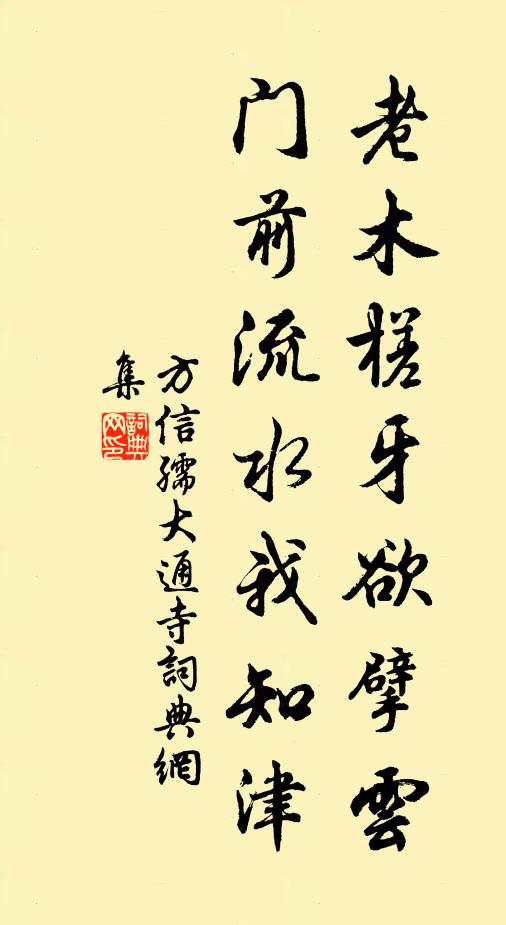 老木槎牙欲擘雲
门前流水我知津
方信孺大通寺詞典網
集
詞典
网印